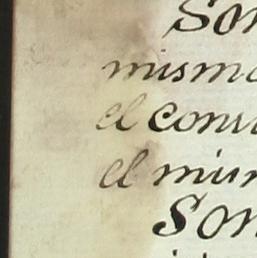 Son
misma
el conv
el mun
Son